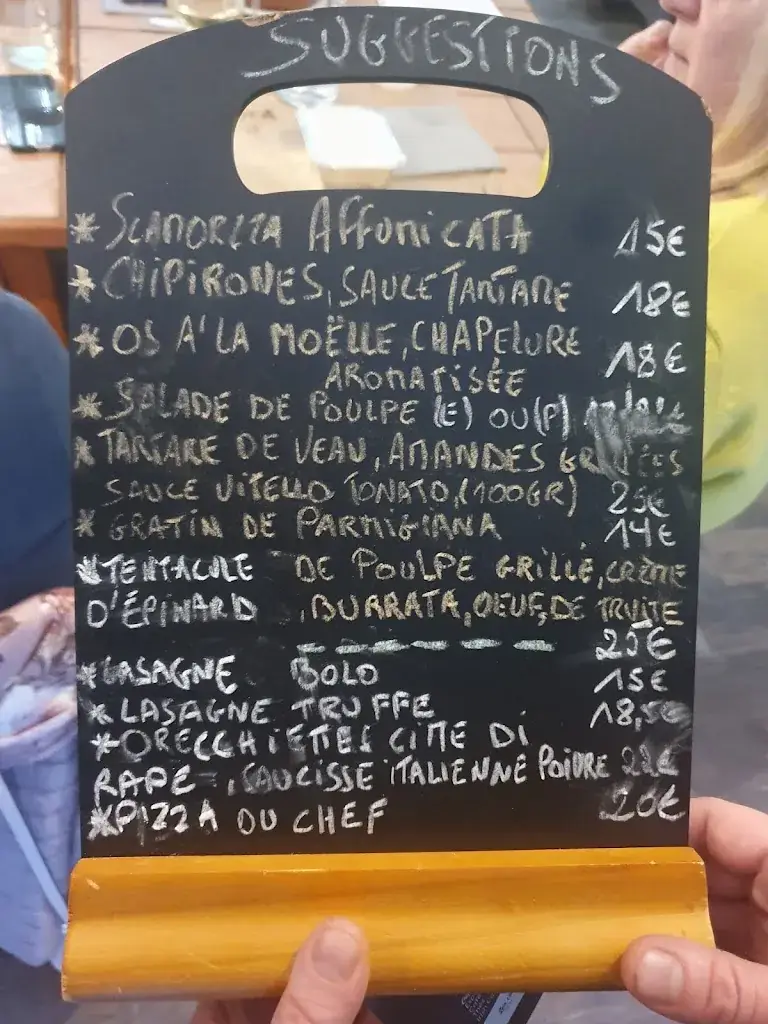 SUGGESTIONS
* SCAMORZZA AFFUMICATA 15€
* CHIPIRONES, SAUCE TARTARE 18€
* OS A' LA MOËLLE, CHAPELURE 18€
AROMATISÉE
* SALADE DE POULPE (E) OU (P)
* TARTARE DE VEAU, AMANDES GRILLÉES
SAUCE VITELLO TONATO, (100GR) 25€
* GRATIN DE PARMIGIANA 14€
* TENTACULE DE POULPE GRILLÉ, CRÈME
D'ÉPINARD, BURRATA, OEUF, DE TRUITE
25€
* LASAGNE BOLO 15€
* LASAGNE TRUFFE 18,5€
* ORECCHIETTES CIME DI
RAPE, SAUCISSE ITALIENNE POIVRE 22€
* PIZZA DU CHEF 20€